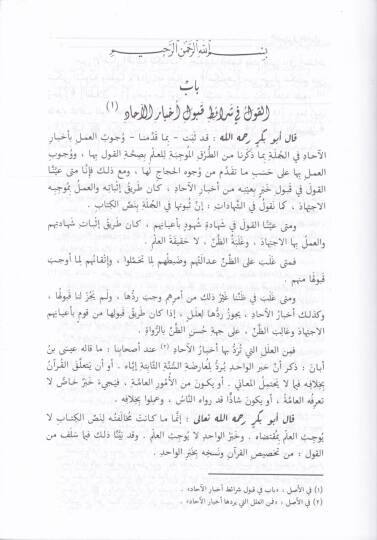 بسم الله الرحمن الرحيم
باب
القول في شرائط قبول أخبار الآحاد (١)
قال أبو بكر رحمه الله : قد ثبت - بما قدمنا - وجوب العمل بأخبار
الآحاد في الجملة بما ذكرنا من الطرق الموجبة للعلم بصحة القول بها ، ووجوب
العمل بها على حسب ما تقدم من وجوه الحجاج لها ، ومع ذلك فإنا متى عينا
القول في قبول خبر بعينه من أخبار الآحاد ، كان طريق إثباته والعمل بموجبه
الاجتهاد ، كما نقول في الشهادات : إن ثبوتها في الجملة بنص الكتاب .
ومتى عينا القول في شهادة شهود بأعيانهم ، كان طريق إثبات شهادتهم
والعمل بها الاجتهاد ، وغلبة الظن ، لا حقيقة العلم .
فمتى غلب على الظن عدالتهم وضبطهم لما تحملوا ، وإتقانهم لما أوجب
قبولها منهم .
ومتى غلب في ظننا غير ذلك من أمرهم وجب ردها ، ولم يجز لنا قبولها ،
وكذلك أخبار الآحاد ، يجوز ردها لعلل ، إذا كان طريق قبولها من قوم بأعيانهم
الاجتهاد وغالب الظن ، على جهة حسن الظن بالرواة .
فمن العلل التي ترد بها أخبار الآحاد (٢) عند أصحابنا : ما قاله عيسى بن
أبان : ذكر أن خبر الواحد يرد لمعارضة السنة الثابتة إياه . أو أن يتعلق القرآن
بخلافه فيما لا يحتمل المعاني . أو يكون من الأمور العامة ، فيجيء خبر خاص لا
تعرفه العامة ، أو يكون شاذا قد رواه الناس ، وعملوا بخلافه .
قال أبو بكر رحمه الله تعالى : إنما ما كانت مخالفته لنص الكتاب لا
يوجب العلم بمقتضاه . وخبر الواحد لا يوجب العلم . وقد بينا ذلك فيما سلف من
القول : من تخصيص القرآن ونسخه بخبر الواحد .
(١) في الأصل ، «باب في قبول شرائط أخبار الآحاد» .
(٢) في الأصل ، «فمن العلل التي يردها أخبار الآحاد» .